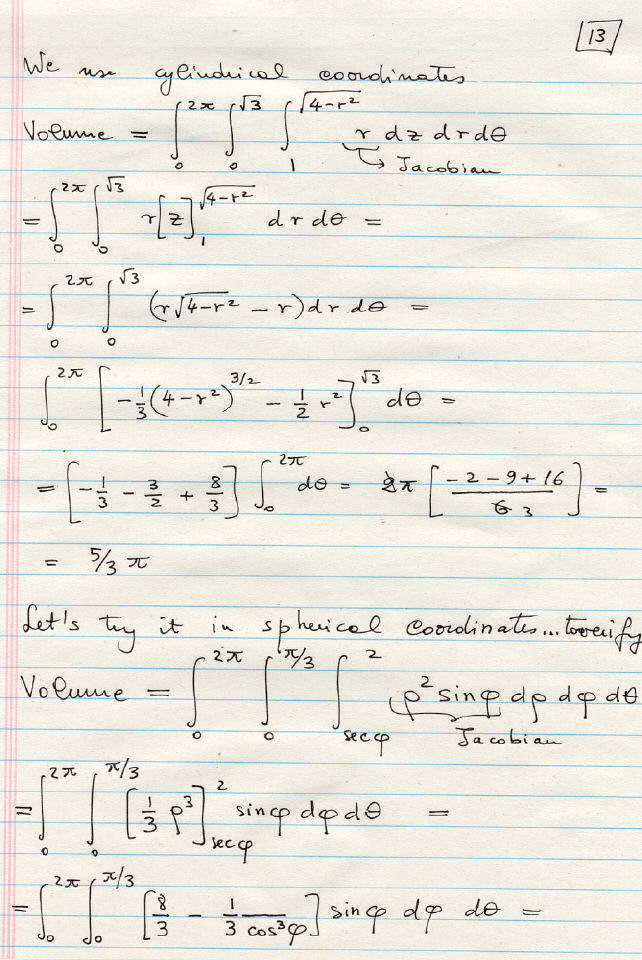 13
We use cylindrical coordinates
Volume = ∫₀^{2π} ∫₀^{√3} ∫₁^{√(4−r²)} r dz dr dθ
↳ Jacobian
= ∫₀^{2π} ∫₀^{√3} r[z]₁^{√(4−r²)} dr dθ =
= ∫₀^{2π} ∫₀^{√3} (r√(4−r²) − r) dr dθ =
∫₀^{2π} [−1/3 (4−r²)^{3/2} − 1/2 r²]₀^{√3} dθ =
= [−1/3 − 3/2 + 8/3] ∫₀^{2π} dθ = 2π [(−2−9+16)/6 3] =
= 5/3 π
Let's try it in spherical coordinates... to verify
Volume = ∫₀^{2π} ∫₀^{π/3} ∫_{sec φ}^{2} ρ² sin φ dρ dφ dθ
Jacobian
= ∫₀^{2π} ∫₀^{π/3} [1/3 ρ³]_{sec φ}^{2} sin φ dφ dθ =
= ∫₀^{2π} ∫₀^{π/3} [8/3 − 1/(3 cos³φ)] sin φ dφ dθ =